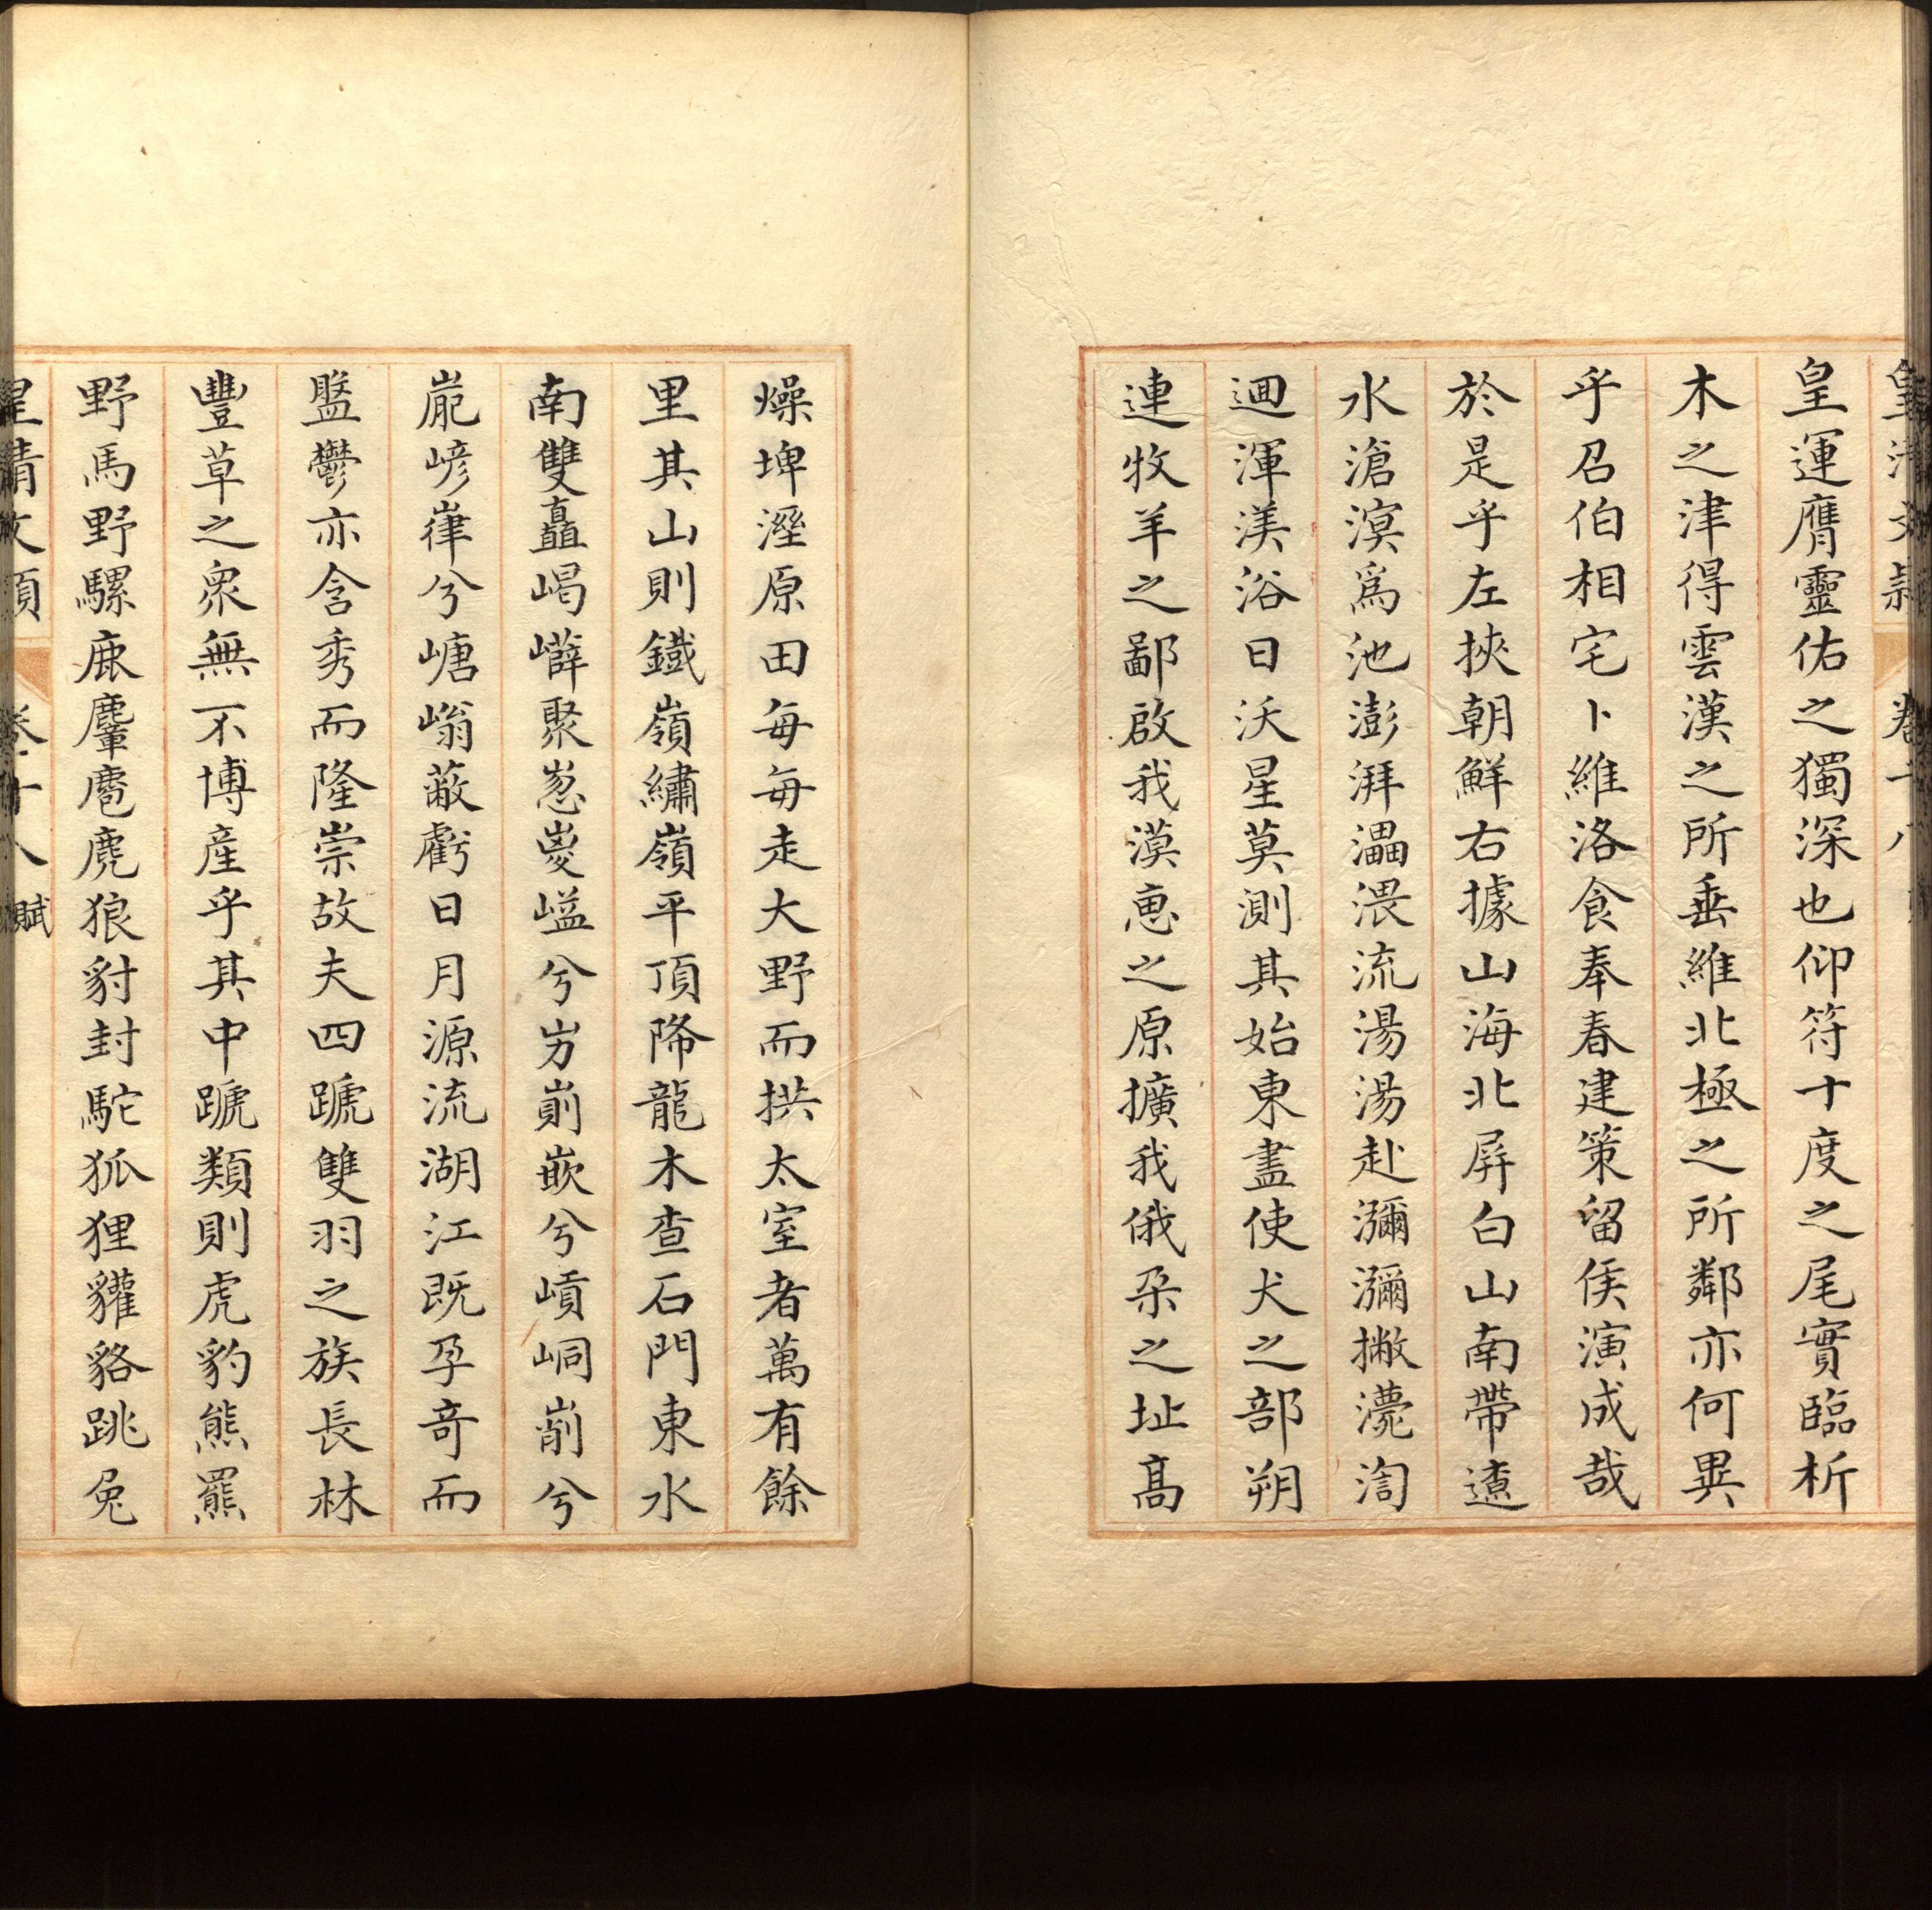 皇清文穎 卷十八
皇運膺靈佑之獨深也仰符十度之尾實臨析
木之津得雲漢之所垂維北極之所鄰亦何異
乎召伯相宅卜維洛食奉春建策留侯演成哉
於是乎左挾朝鮮右據山海北屏白山南帶遼
水滄溟爲池澎湃㵢渨流湯湯赴瀰瀰撇㶇渹
迴渾渼浴日沃星莫測其始東盡使犬之部朔
連牧羊之鄙啟我漠惠之原擴我俄朶之址髙
燥埤溼原田每每走大野而拱太室者萬有餘
里其山則鐵嶺繡嶺平頂降龍木查石門東水
南雙矗嵑㠎聚嵸㟅嵫兮屶崱嵌兮㟧峒㓹兮
嵹嵃嵂兮嵣嵡蔽虧日月源流湖江既孕竒而
盬鬱亦含秀而隆崇故夫四蹏雙羽之族長林
豐草之衆無不博産乎其中蹏類則虎豹熊羆
野馬野騾鹿麞麅麂狼豺封駝狐狸貛貉跳兔
皇清文穎 卷十八 賦